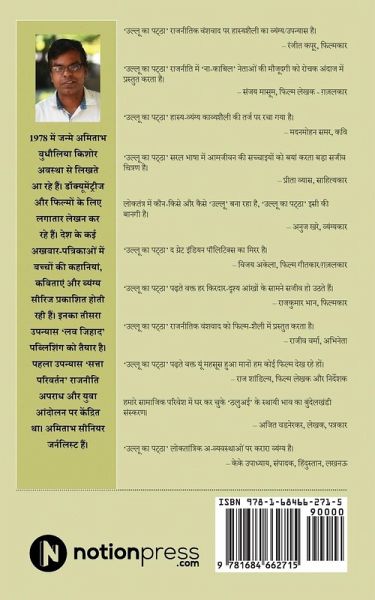 1978 में जन्मे अमिताभ
बुधौलिया किशोर
अवस्था से लिखते
आ रहे हैं। डॉक्यूमेंट्रीज
और फिल्मों के लिए
लगातार लेखन कर
रहे हैं। देश के कई
अखबार-पत्रिकाओं में
बच्चों की कहानियां,
कविताएं और व्यंग्य
सीरिज प्रकाशित होती
रही हैं। इनका तीसरा
उपन्यास 'लव जिहाद'
पब्लिशिंग को तैयार है।
पहला उपन्यास 'सत्ता
परिवर्तन' राजनीति
अपराध और युवा
आंदोलन पर केंद्रित
था। अमिताभ सीनियर
जर्नलिस्ट हैं।
'उल्लू का पट्ठा' राजनीतिक वंशवाद पर हास्यशैली का व्यंग्य/उपन्यास है।
– रंजीत कपूर, फिल्मकार
'उल्लू का पट्ठा' राजनीति में 'ना-काबिल' नेताओं की मौजूदगी को रोचक अंदाज में
प्रस्तुत करता है।
– संजय मासूम, फिल्म लेखक - ग़ज़लकार
'उल्लू का पट्ठा' हास्य-व्यंग्य काव्यशैली की तर्ज पर रचा गया है।
– मदनमोहन समर, कवि
'उल्लू का पट्ठा' सरल भाषा में आमजीवन की सच्चाइयों को बयां करता बड़ा सजीव
चित्रण है।
– प्रीता व्यास, साहित्यकार
लोकतंत्र में कौन-किसे और कैसे 'उल्लू' बना रहा है, 'उल्लू का पट्ठा' इसी की
बानगी है।
– अनुज खरे, व्यंग्यकार
'उल्लू का पट्ठा' द ग्रेट इंडियन पॉलिटिक्स का मिरर है।
– विजय अकेला, फिल्म गीतकार/ग़ज़लकार
'उल्लू का पट्ठा' पढ़ते वक्त हर किरदार-दृश्य आंखों के सामने सजीव हो उठते हैं।
– राजकुमार भान, फिल्मकार
'उल्लू का पट्ठा' राजनीतिक वंशवाद को फिल्म-शैली में प्रस्तुत करता है।
– राजीव वर्मा, अभिनेता
'उल्लू का पट्ठा' पढ़ते वक्त यूं महसूस हुआ मानों हम कोई फिल्म देख रहे हों।
– राज शांडिल्य, फिल्म लेखक और निर्देशक
हमारे सामाजिक परिवेश में घर कर चुके 'ठलुअई' के स्थायी भाव का बुंदेलखंडी
संस्करण।
– अजित वडनेरकर, लेखक, पत्रकार
'उल्लू का पट्ठा' लोकतांत्रिक अ-व्यवस्थाओं पर करारा व्यंग्य है।
– केके उपाध्याय, संपादक, हिंदुस्तान, लखनऊ
ISBN 978-1-68466-271-5
90000
9 781684 662715
N notionpress
.com